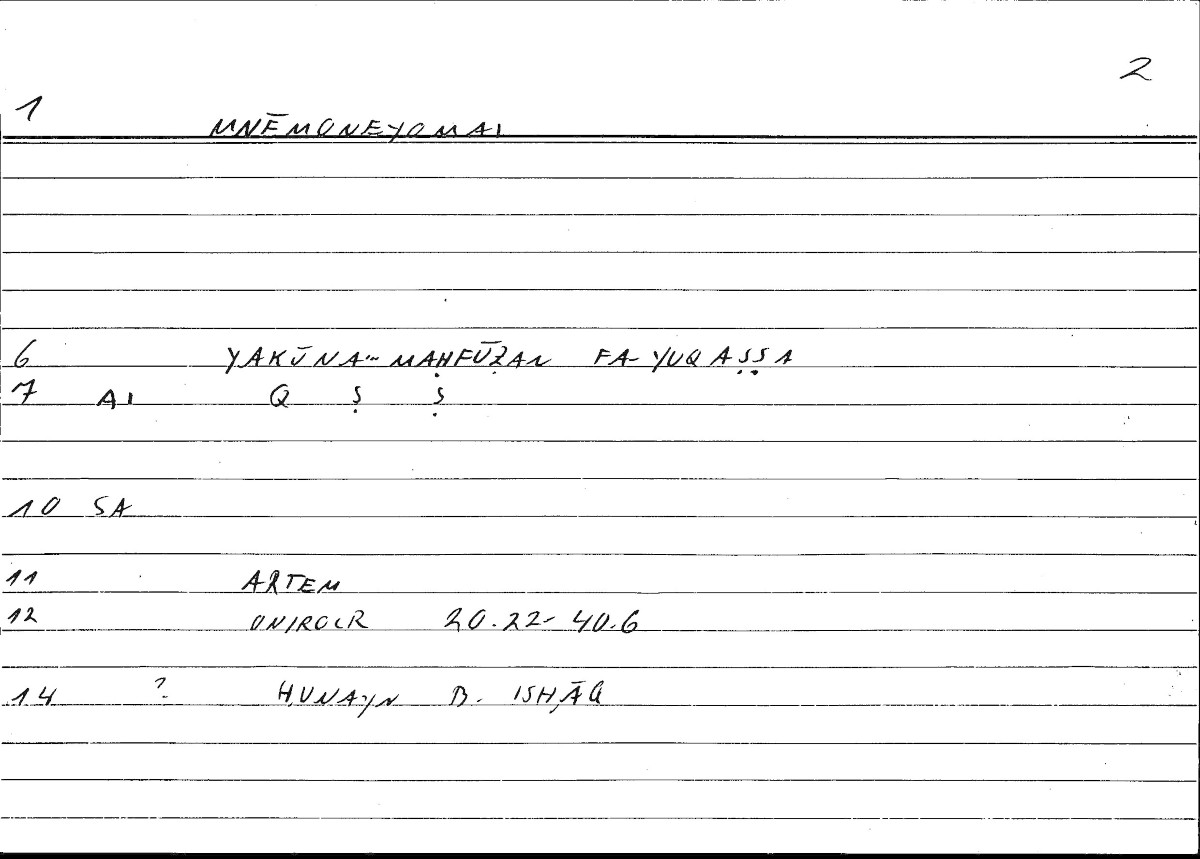 2
1 MNĒMONEYOMAI
6 YAKŪNA MAḤFŪẒAN FA-YUQAṢṢA
7 AI Q Ṣ Ṣ
10 SA
11 ARTEM
12 ONIROCR 20.22-40.6
14 ? ḤUNAYN B. ISḤĀQ